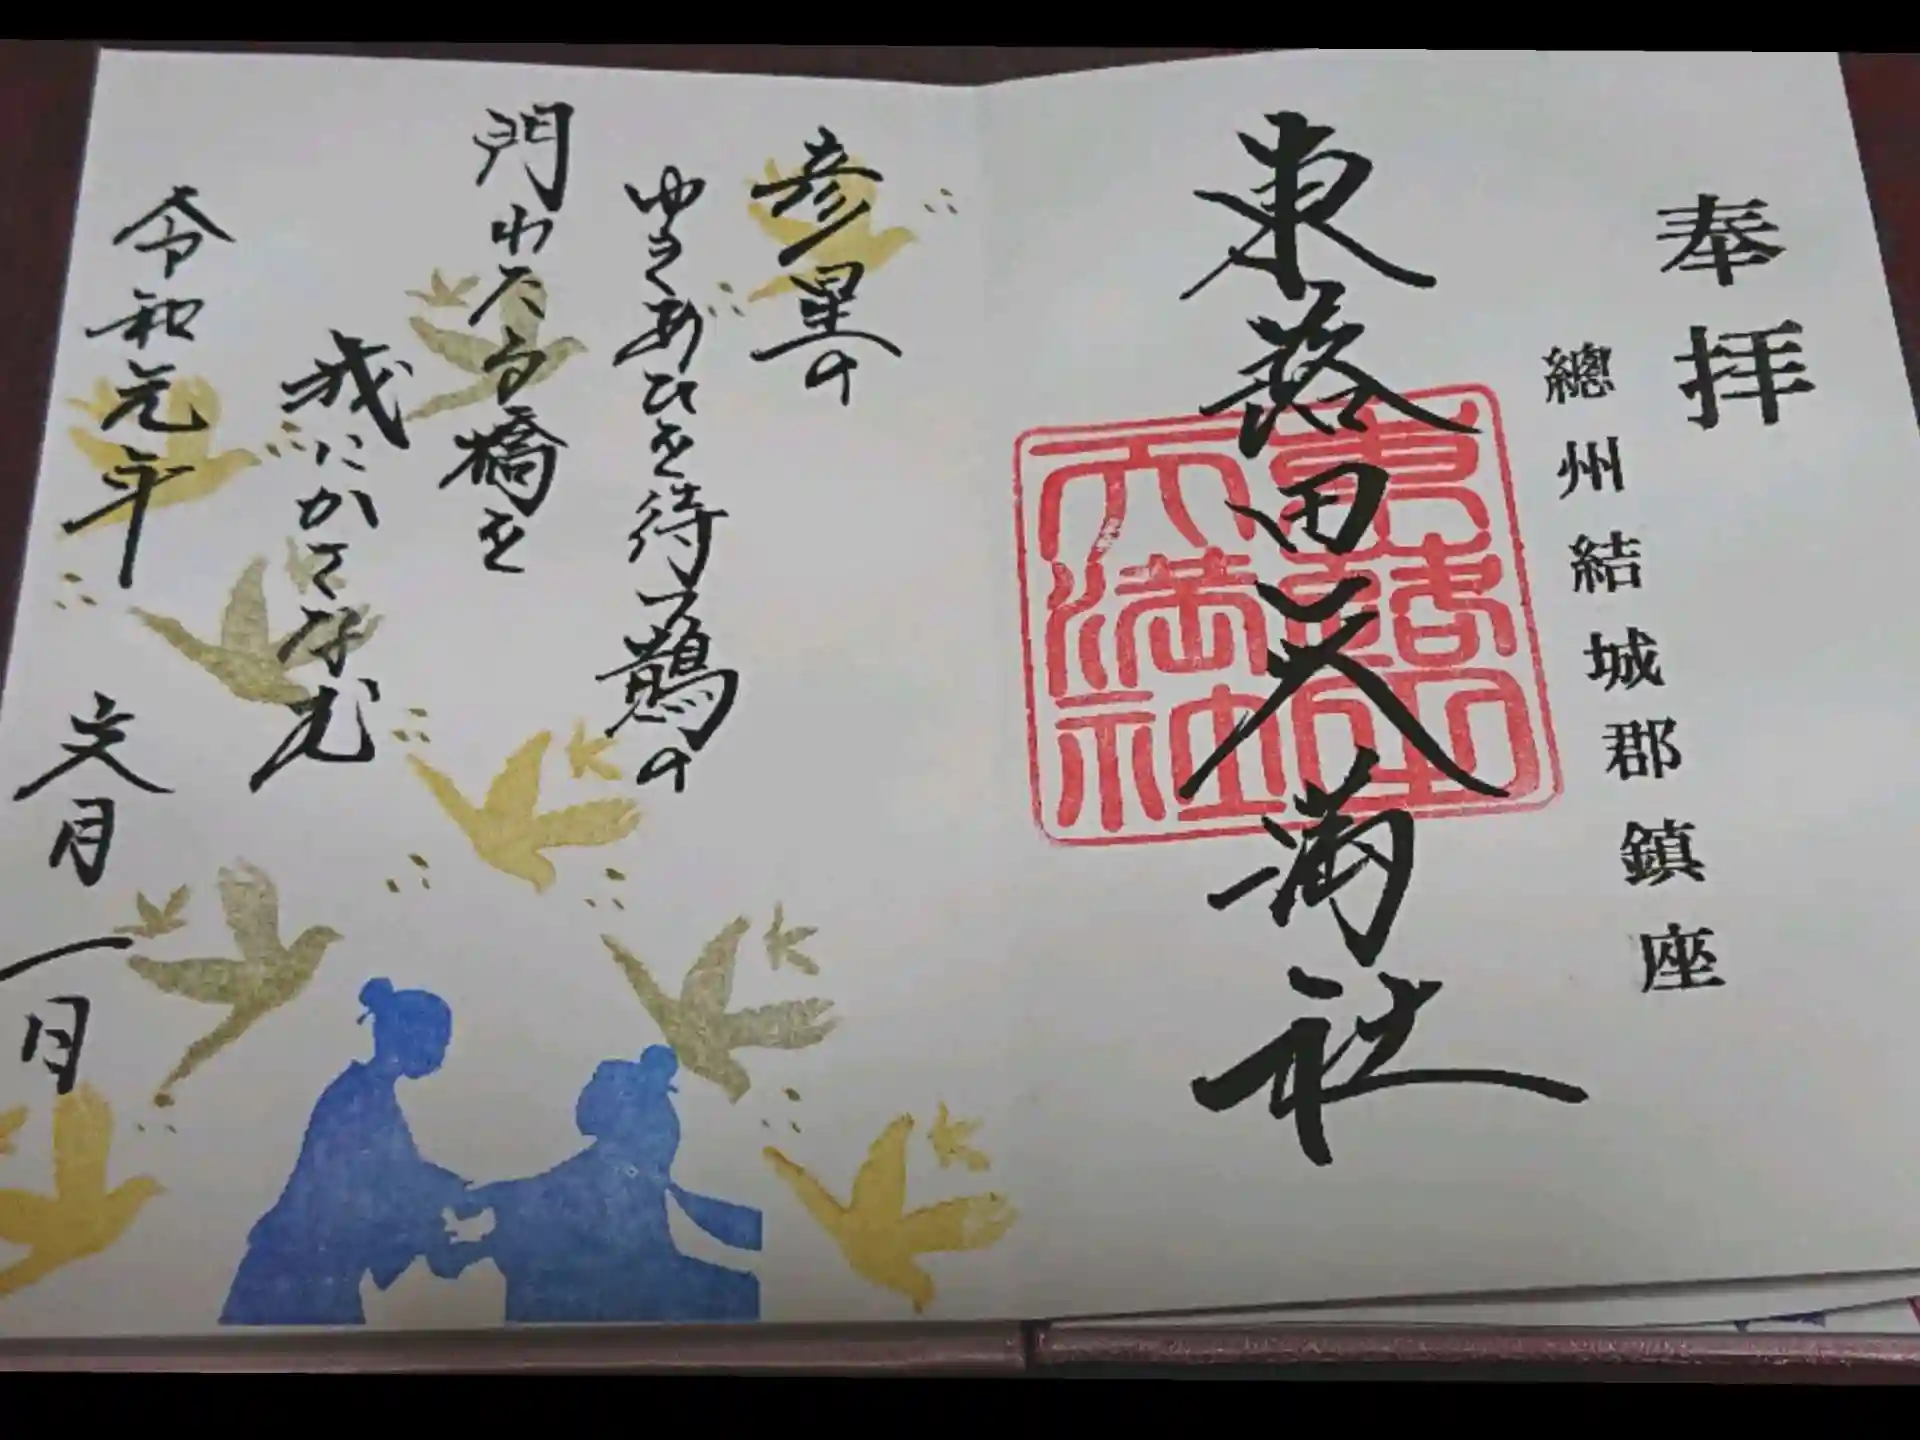 奉拝
總州結城郡鎮座
東蕗田天満社
東蕗田
天満社
彦星の
ゆきあひを待つ鵲の
門わたる橋を
我にかさなむ
令和元年 文月一日